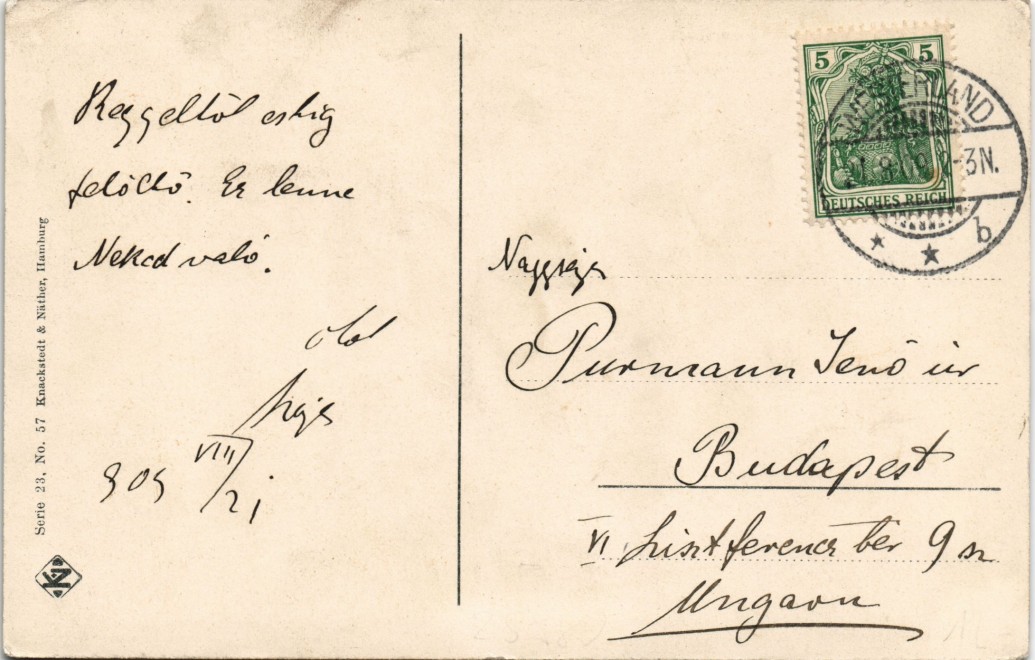 Reggeltöl estig
felöltö. Ez lenne
Neked való.
ölel
909 VIII/21
Serie 23, No. 57 Knackstedt & Näther, Hamburg
5 5
DEUTSCHES REICH
WESTERLAND
-3N.
b
Nagyságos
Purmann Jenö úr
Budapest
VI Liszt ferencz tér 9 sz
Ungarn